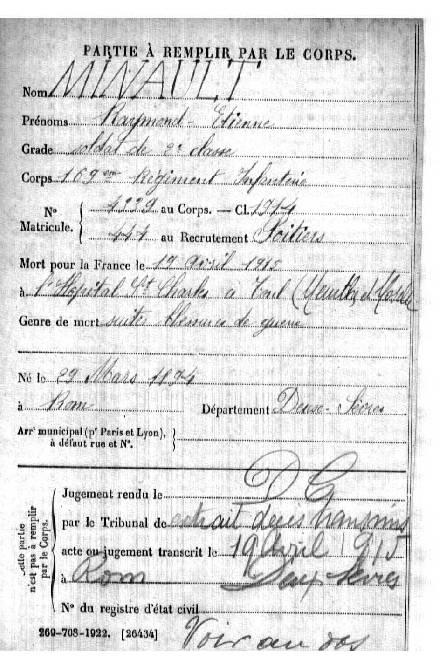 PARTIE À REMPLIR PAR LE CORPS.
Nom MINAULT
Prénoms Raymond-Etienne
Grade soldat de 2e classe
Corps 169em Régiment Infanterie
N° Matricule. { 4229 au Corps. — Cl. 1914
444 au Recrutement Poitiers
Mort pour la France le 19 avril 1915
à l'Hopital St Charles à Toul (Meurthe et Moselle
Genre de mort suites blessures de guerre
Né le 29 Mars 1894
à Rom Département Deux-Sèvres
Arrt municipal (pr Paris et Lyon), à défaut rue et N°. }
Cette partie n'est pas à remplir par le Corps.
Jugement rendu le D G
par le Tribunal de extrait décès transmis
acte ou jugement transcrit le 19 Avril 915
à Rom Deux Sèvres
N° du registre d'état civil
269-708-1922. [26434] Voir au dos